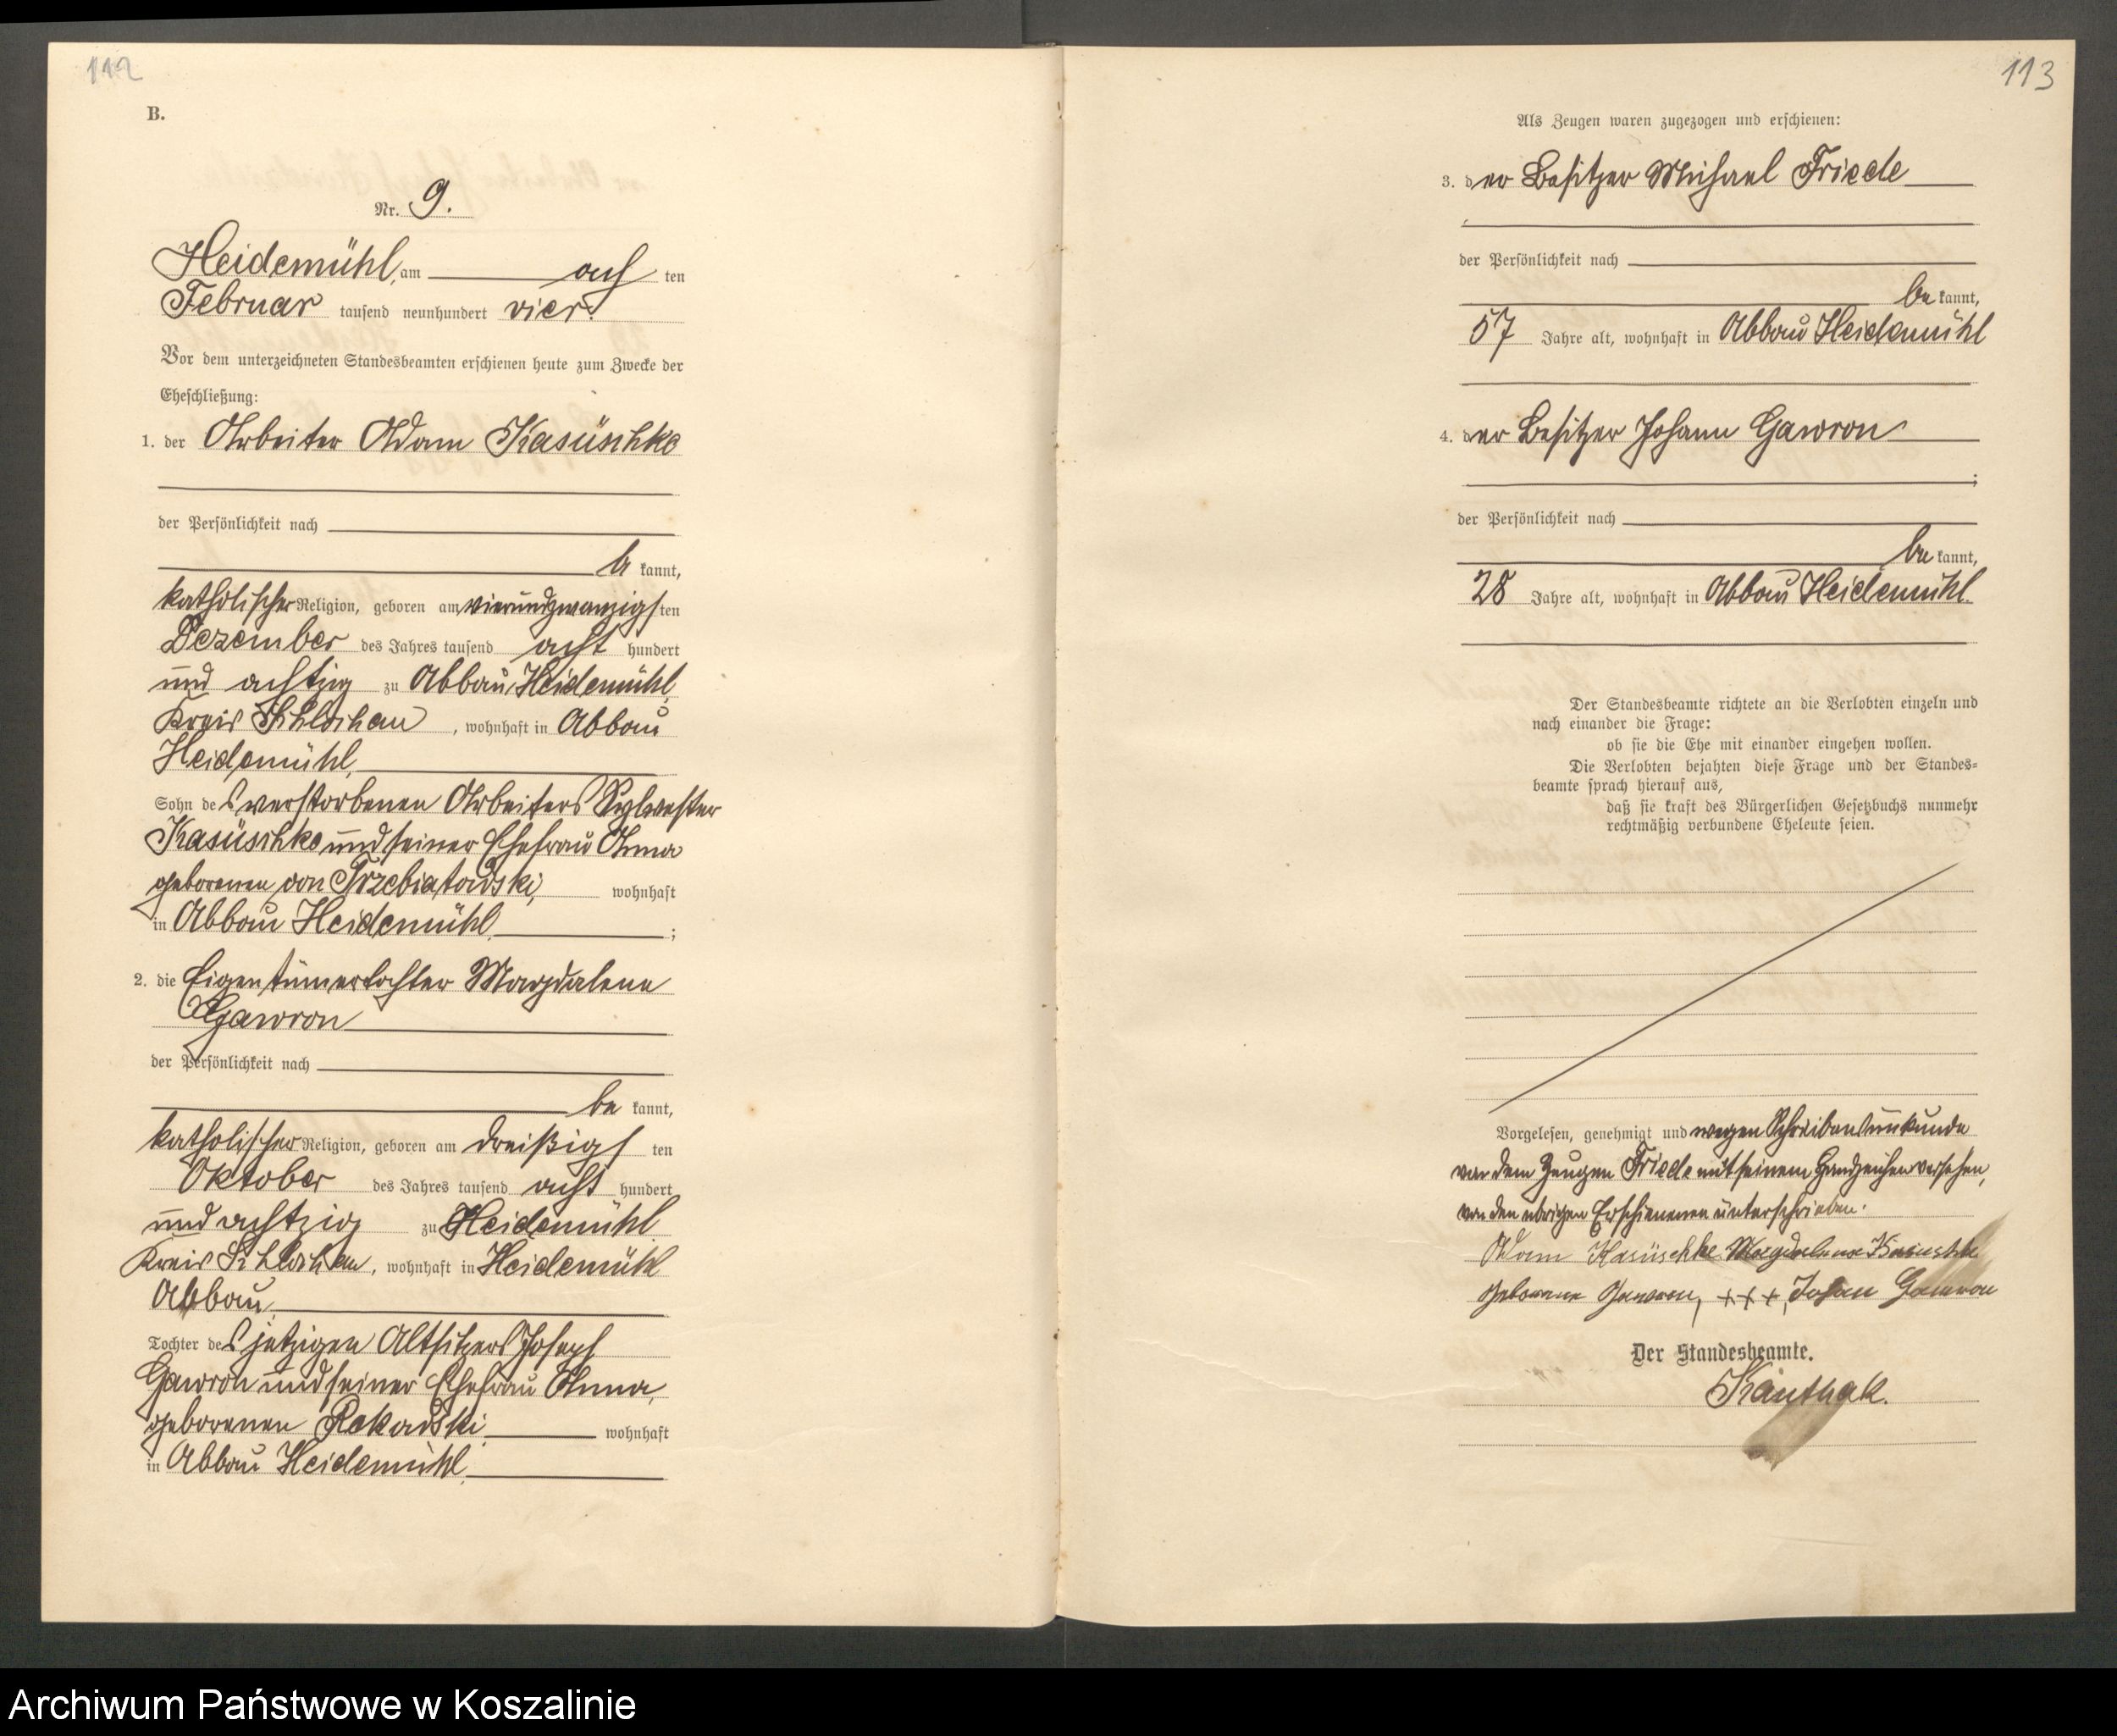 112
B.
Nr. 9.
Heidemühl, am acht ten
Februar tausend neunhundert vier.
Vor dem unterzeichneten Standesbeamten erschienen heute zum Zwecke der
Eheschließung:
1. der Arbeiter Adam Kasüschke
der Persönlichkeit nach
be kannt,
katholischer Religion, geboren am vierundzwanzigsten
Dezember des Jahres tausend acht hundert
und achtzig zu Abbau Heidemühl,
Kreis Schlochau, wohnhaft in Abbau
Heidemühl,
Sohn des verstorbenen Arbeiters Sylvester
Kasüschke und seiner Ehefrau Anna
geborenen von Trzebiatowski, wohnhaft
in Abbau Heidemühl;
2. die Eigentümertochter Magdalena
Gawron
der Persönlichkeit nach
be kannt,
katholischer Religion, geboren am dreißigs ten
Oktober des Jahres tausend acht hundert
und achtzig zu Heidemühl
Kreis Schlochau, wohnhaft in Heidemühl
Abbau,
Tochter des jetzigen Altsitzers Joseph
Gawron und seiner Ehefrau Anna,
geborenen Rekowski wohnhaft
in Abbau Heidemühl,
113
Als Zeugen waren zugezogen und erschienen:
3. der Besitzer Michael Friede
der Persönlichkeit nach
be kannt,
57 Jahre alt, wohnhaft in Abbau Heidemühl
4. der Besitzer Johann Gawron
;
der Persönlichkeit nach
be kannt,
28 Jahre alt, wohnhaft in Abbau Heidemühl.
Der Standesbeamte richtete an die Verlobten einzeln und
nach einander die Frage:
ob sie die Ehe mit einander eingehen wollen.
Die Verlobten bejahten diese Frage und der Standes-
beamte sprach hierauf aus,
daß sie kraft des Bürgerlichen Gesetzbuchs nunmehr
rechtmäßig verbundene Eheleute seien.
Vorgelesen, genehmigt und wegen Schreibensunkunde
von dem Zeugen Friede mit seinem Handzeichen versehen,
von den übrigen Erschienenen unterschrieben.
Adam Kasüschke Magdalena Kasuschke
geborene Gawron, +++, Johan Gawron
Der Standesbeamte.
Kauthak.
Archiwum Państwowe w Koszalinie